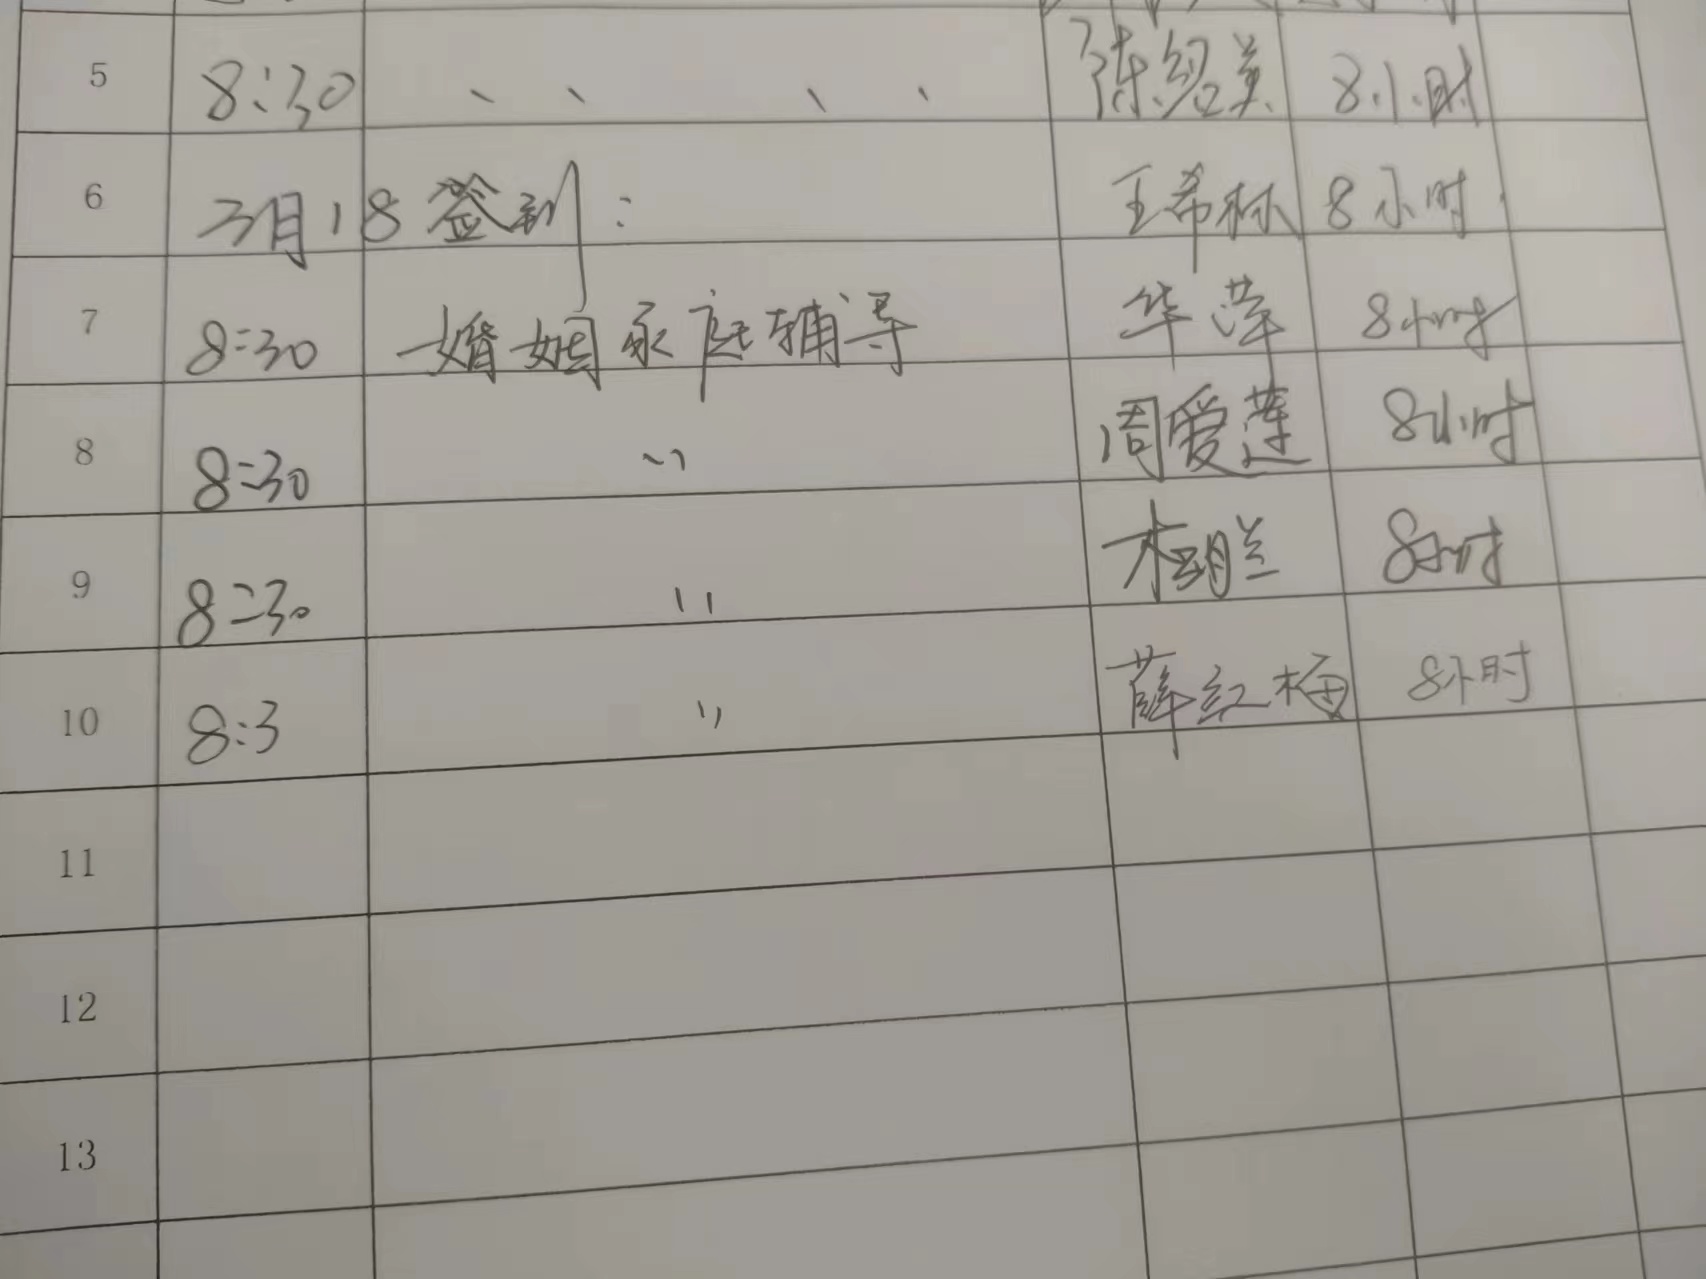 5 8:30 、 、 、 、 陈绍美 8小时
6 3月18签到: 王希林 8小时
7 8:30 婚姻家庭辅导 华萍 8小时
8 8:30 〃 周爱莲 8小时
9 8:30 〃 8小时
10 8:3 〃 薛红梅 8小时
11
12
13